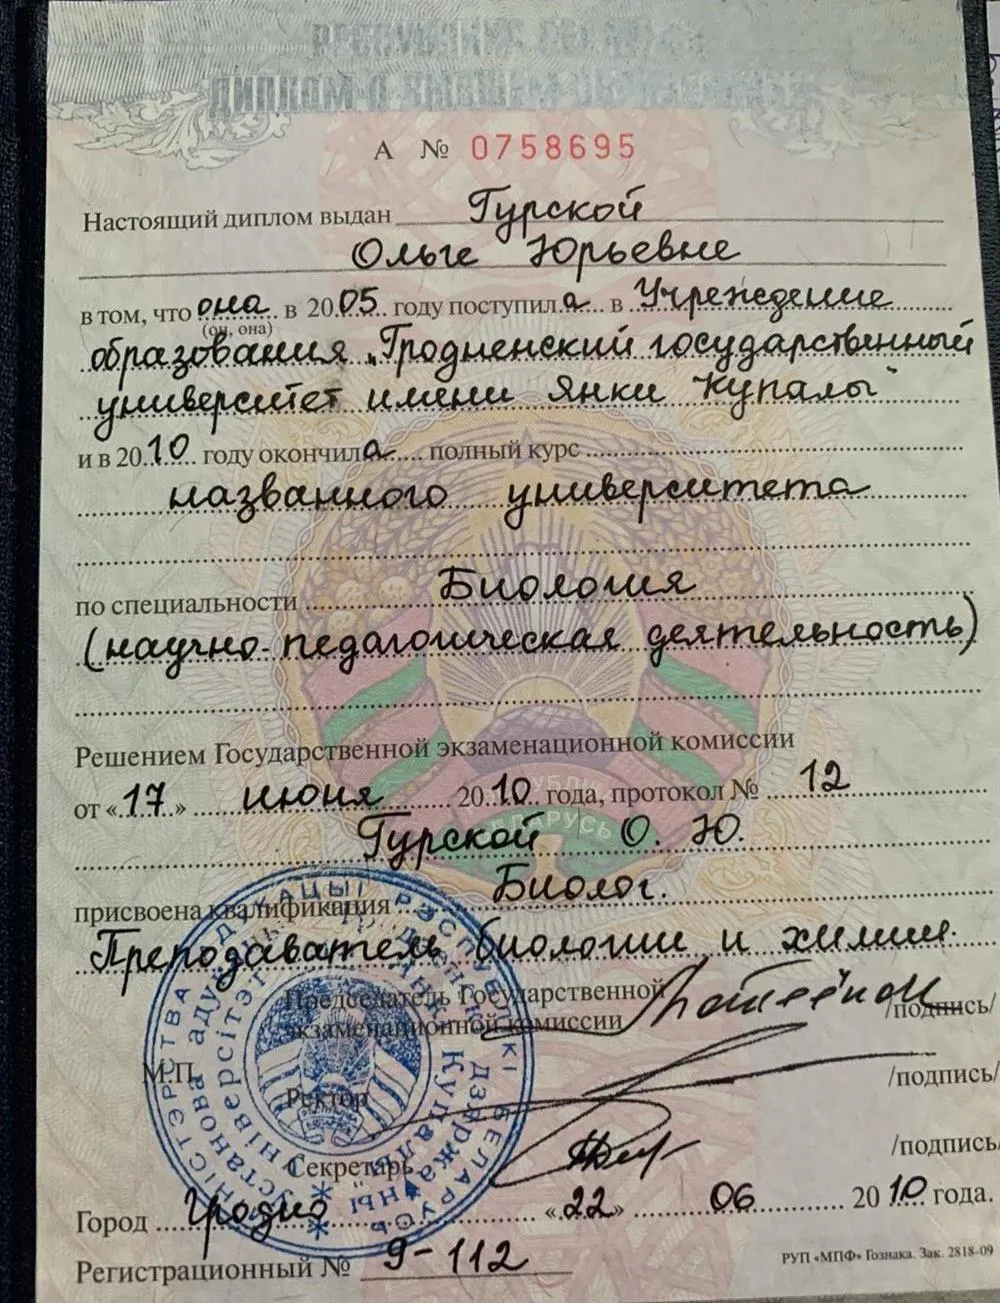 А № 0758695
Настоящий диплом выдан Гурской
Ольге Юрьевне
в том, что она в 2005 году поступила в Учреждение
(он, она)
образования „Гродненский государственный
университет имени Янки Купалы"
и в 2010 году окончила полный курс
названного университета
по специальности Биология
(научно-педагогическая деятельность)
Решением Государственной экзаменационной комиссии
от «17» июня 2010 года, протокол № 12
Гурской О. Ю.
присвоена квалификация Биолог.
Преподаватель биологии и химии.
Председатель Государственной
экзаменационной комиссии /подпись/
М.П.
Ректор /подпись/
Секретарь /подпись/
Город Гродно «22» 06 2010 года.
Регистрационный № 9-112
РУП «МПФ» Гознака. Зак. 2818-09